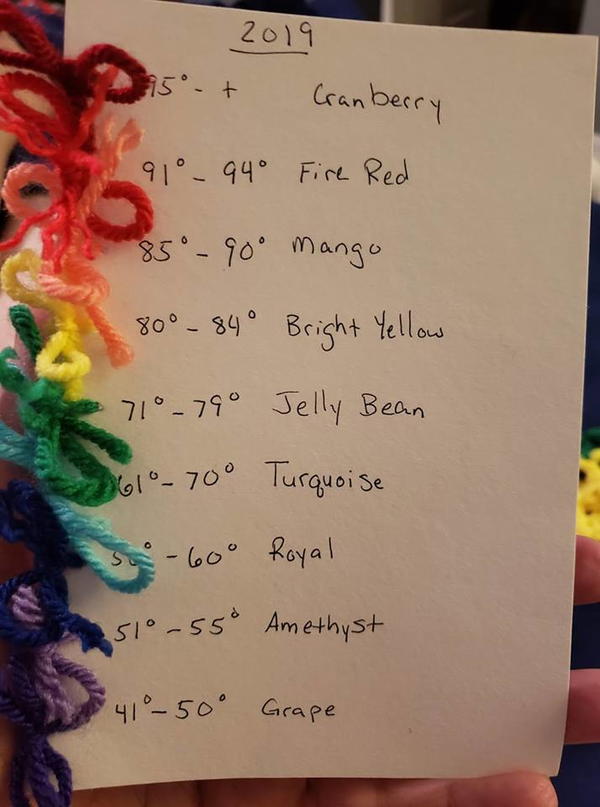 2019
95°-+ Cranberry
91°-94° Fire Red
85°-90° Mango
80°-84° Bright Yellow
71°-79° Jelly Bean
61°-70° Turquoise
-60° Royal
51°-55° Amethyst
41°-50° Grape